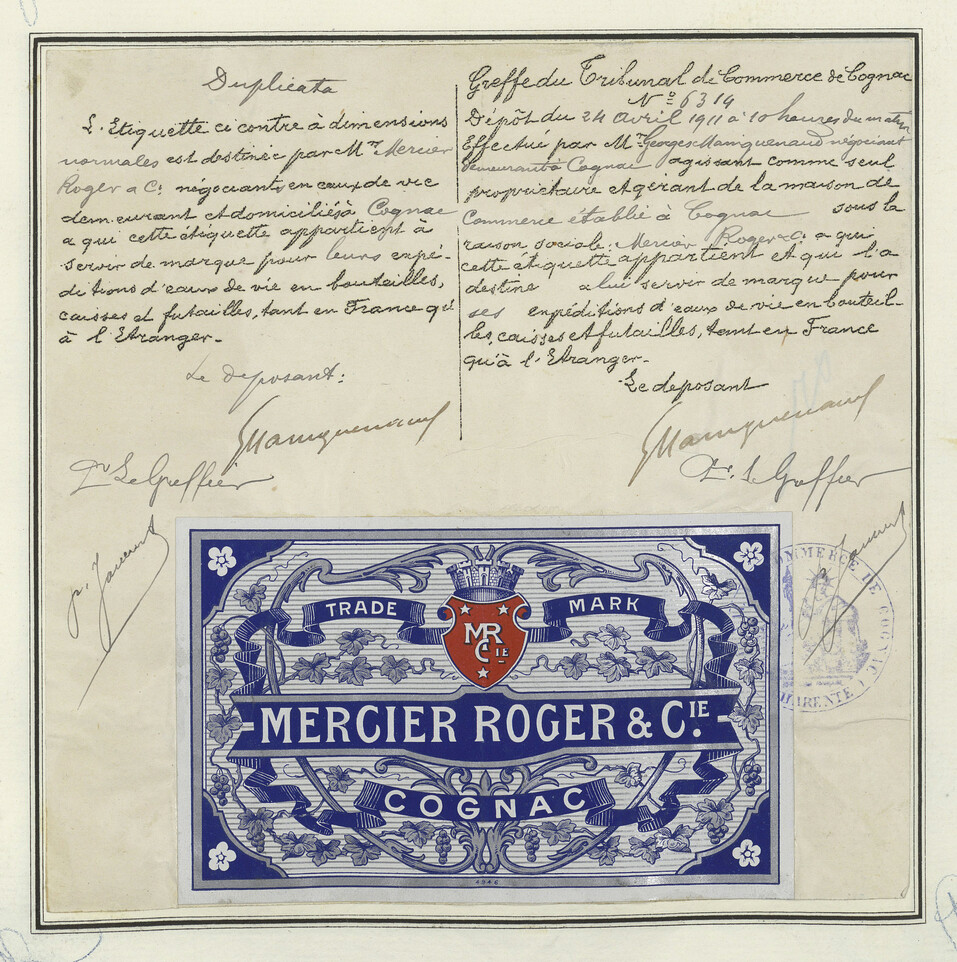 Duplicata
L'Etiquette ci contre à dimensions
normales est destinée par Mrs Mercier
Roger & Co. négociants en eaux de vie
demeurant et domiciliés à Cognac
a qui cette étiquette appartient à
servir de marque pour leurs expé-
ditions d'eaux de vie en bouteilles,
caisses et futailles, tant en France qu'
à l'Etranger.-
Le deposant:
GMainguenaud
Pr Le Greffier
Greffe du Tribunal de Commerce de Cognac
No 6314
Dépôt du 24 Avril 1911 à 10 heures du matin
Effectué par Mr Georges Mainguenaud négociant
demeurant à Cognac agissant comme seul
propriétaire et gérant de la maison de
Commerce établie à Cognac sous la
raison sociale: Mercier Roger & Co. a qui
cette étiquette appartient et qui l'a
destine a lui servir de marque pour
ses expéditions d'eaux de vie en bouteil-
les, caisses et futailles, tant en France
qu'à l'Etranger.-
Le deposant
GMainguenaud
Pr. Le Greffier
TRADE MARK
MR
CIE
MERCIER ROGER & CIE.
COGNAC
COMMERCE DE COGNAC
CHARENTE